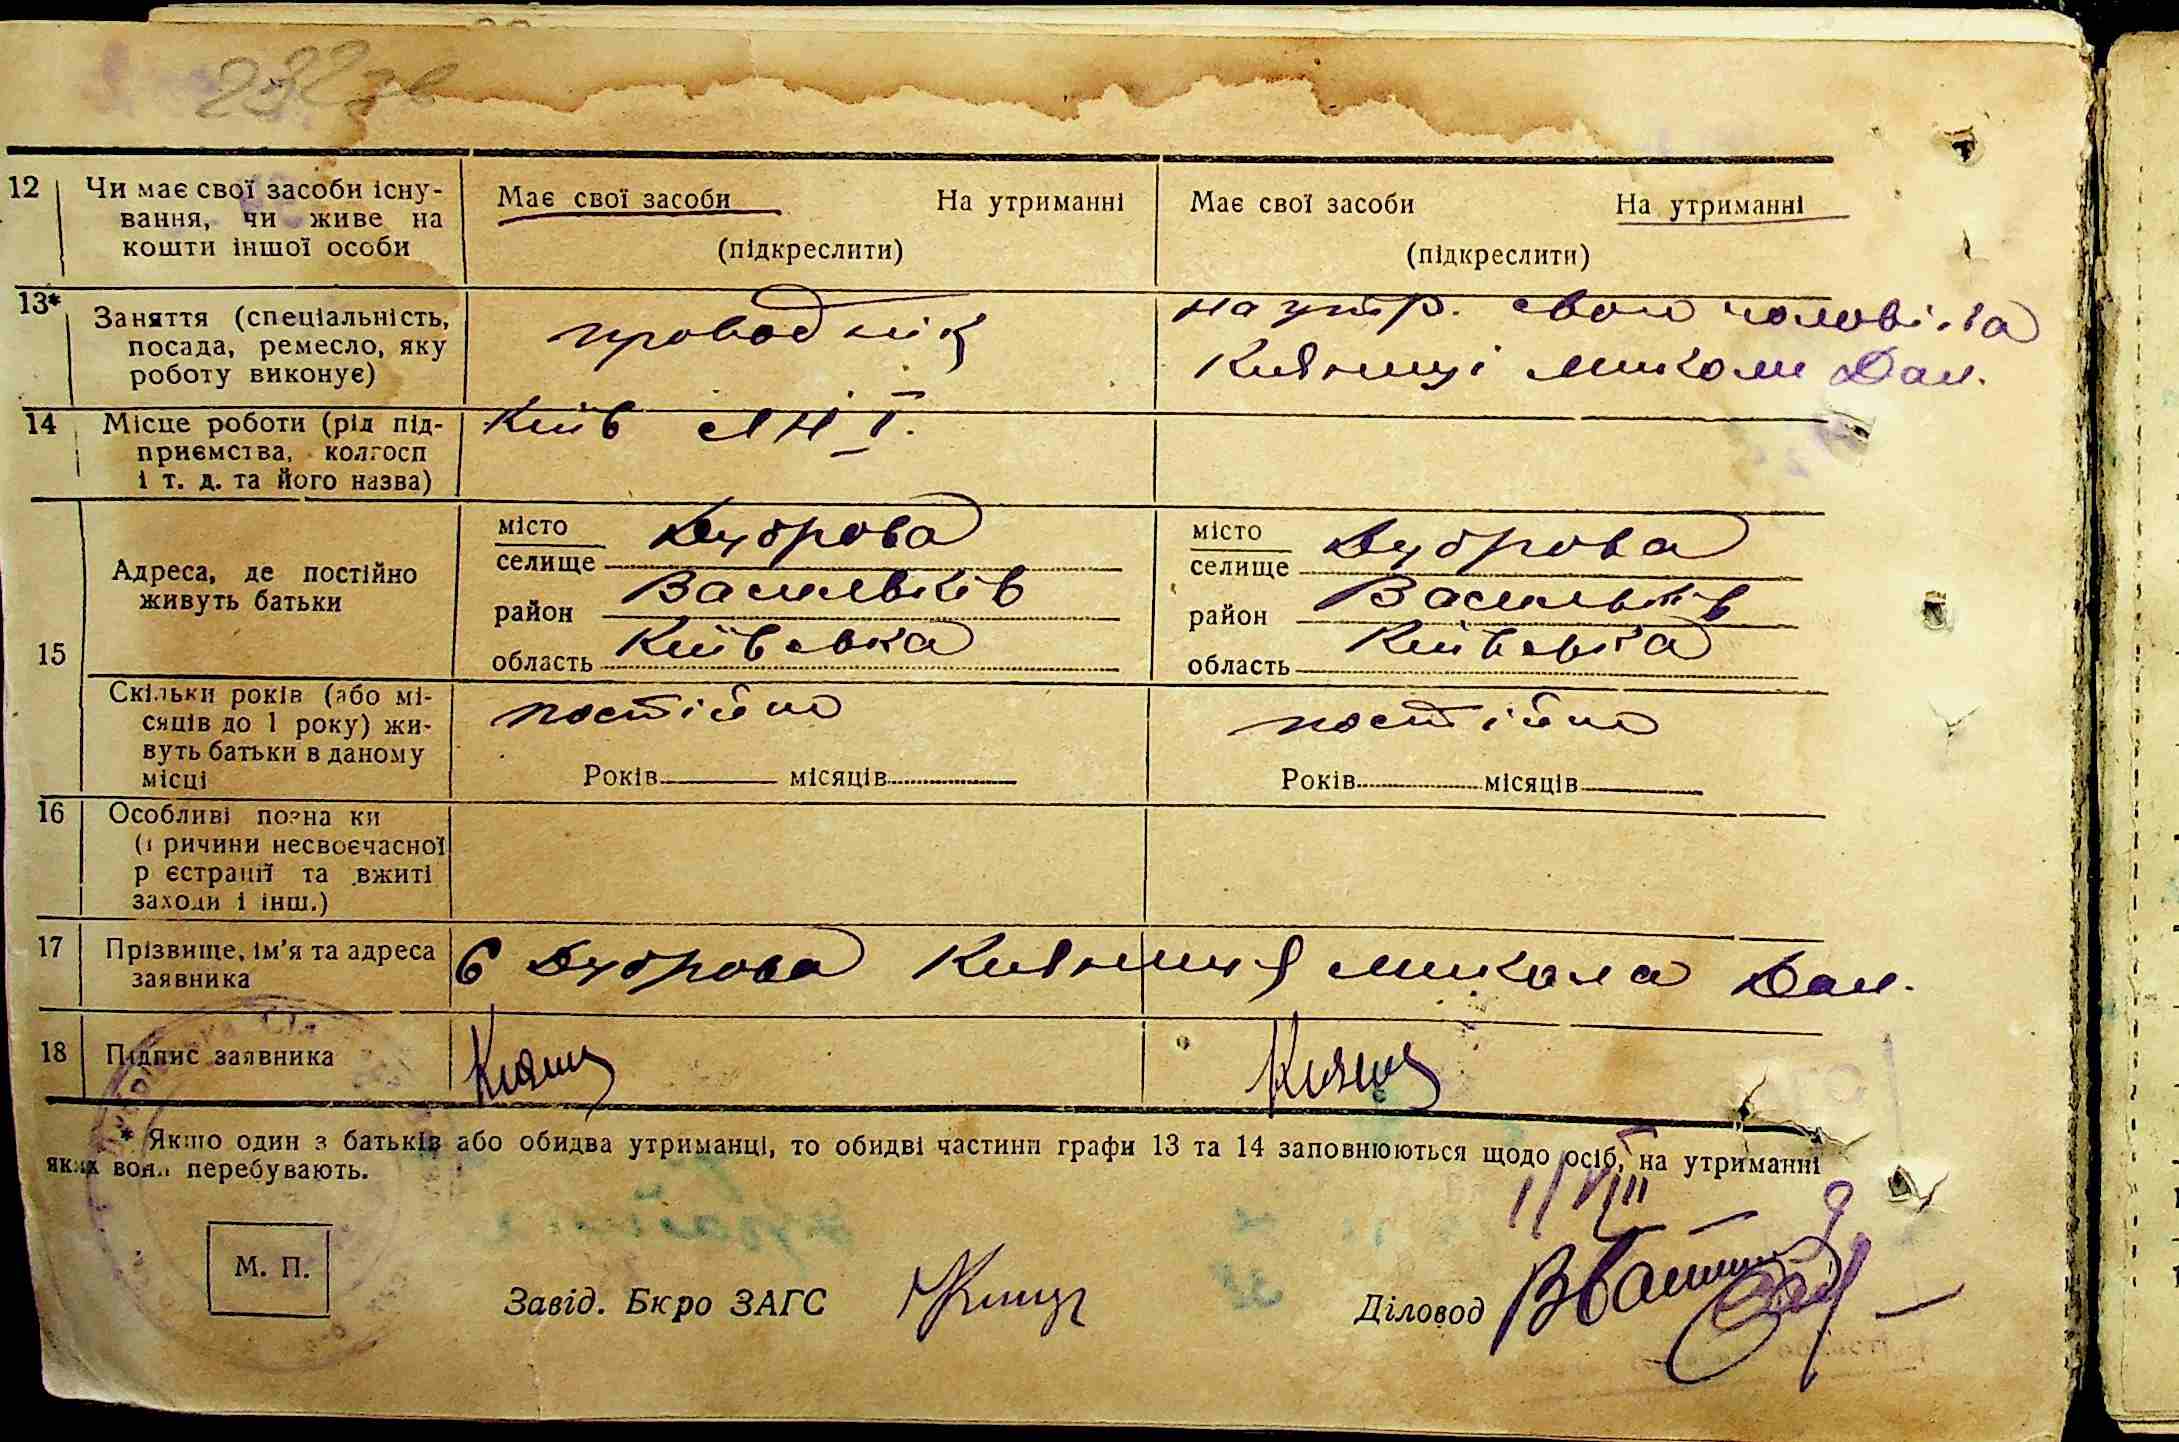 232 зв
12 Чи має свої засоби існу-
вання, чи живе на
кошти іншої особи
Має свої засоби На утриманні
(підкреслити)
Має свої засоби На утриманні
(підкреслити)
13* Заняття (спеціальність,
посада, ремесло, яку
роботу виконує)
проводнік
на утр. свого чоловіка
Кияниці Миколи Дан.
14 Місце роботи (рід під-
приємства, колгосп
і т. д. та його назва)
Київ
15 Адреса, де постійно
живуть батьки
місто
селище Дуброва
район Васильків
область Київська
місто
селище Дуброва
район Васильків
область Київська
Скільки років (або мі-
сяців до 1 року) жи-
вуть батьки в даному
місці
постійно
Років місяців
постійно
Років місяців
16 Особливі позна ки
( ричини несвоєчасної
р єстрації та вжиті
заходи і інш.)
17 Прізвище, ім'я та адреса
заявника
с Дуброва Кияниця Микола Дан.
18 Підпис заявника
Кияни Кияни
* Якщо один з батьків або обидва утриманці, то обидві частини графи 13 та 14 заповнюються щодо осіб, на утриманні
яких вони перебувають.
М. П.
Завід. Бюро ЗАГС
Діловод